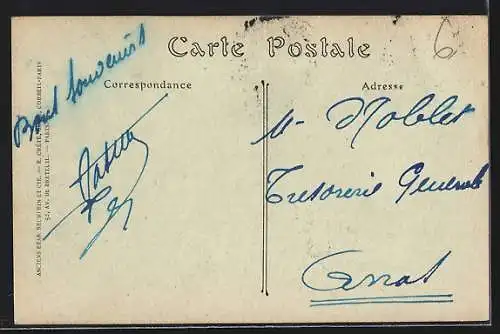 6
Carte Postale
Correspondance
Adresse
Bons souvenirs
Mr Noblet
Tresorerie Generale
Arras
ANCIENS ETAB. NEURDEIN ET CIE. — E. CRÉTÉ, SUCR, CORBEIL-PARIS
52, AV. DE BRETEUIL. — PARIS